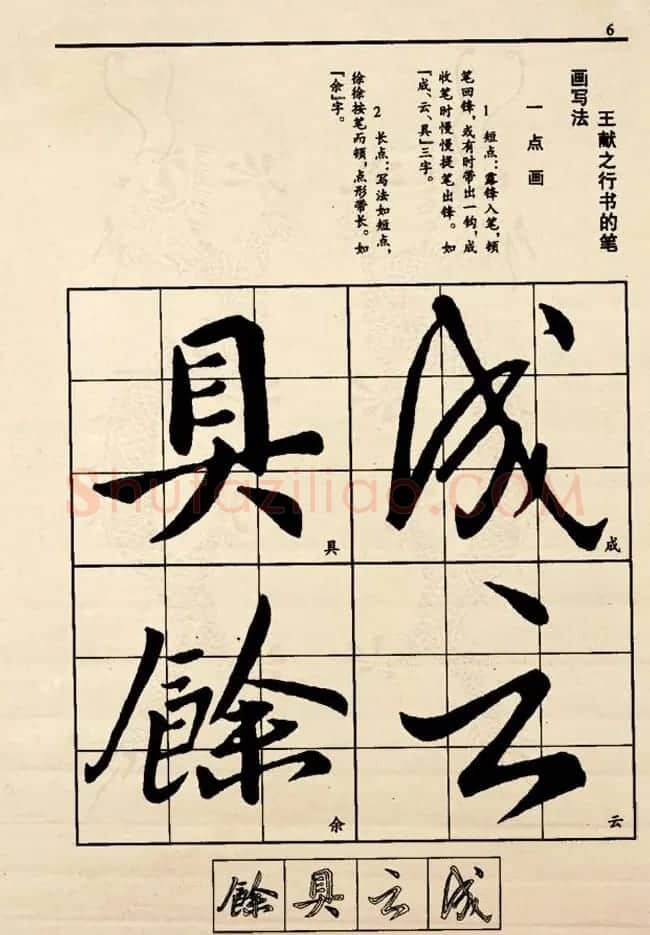 6
王献之行书的笔
画写法
一点画
1 短点：露锋入笔，顿
笔回锋，或有时带出一钩，成
收笔时慢慢提笔出锋。如
『成、云、具』三字。
2 长点：写法如短点，
徐徐按笔而顿，点形带长。如
『余』字。
成
成
云
云
具
具
餘
余
餘具云成
Shufaziliao.COM